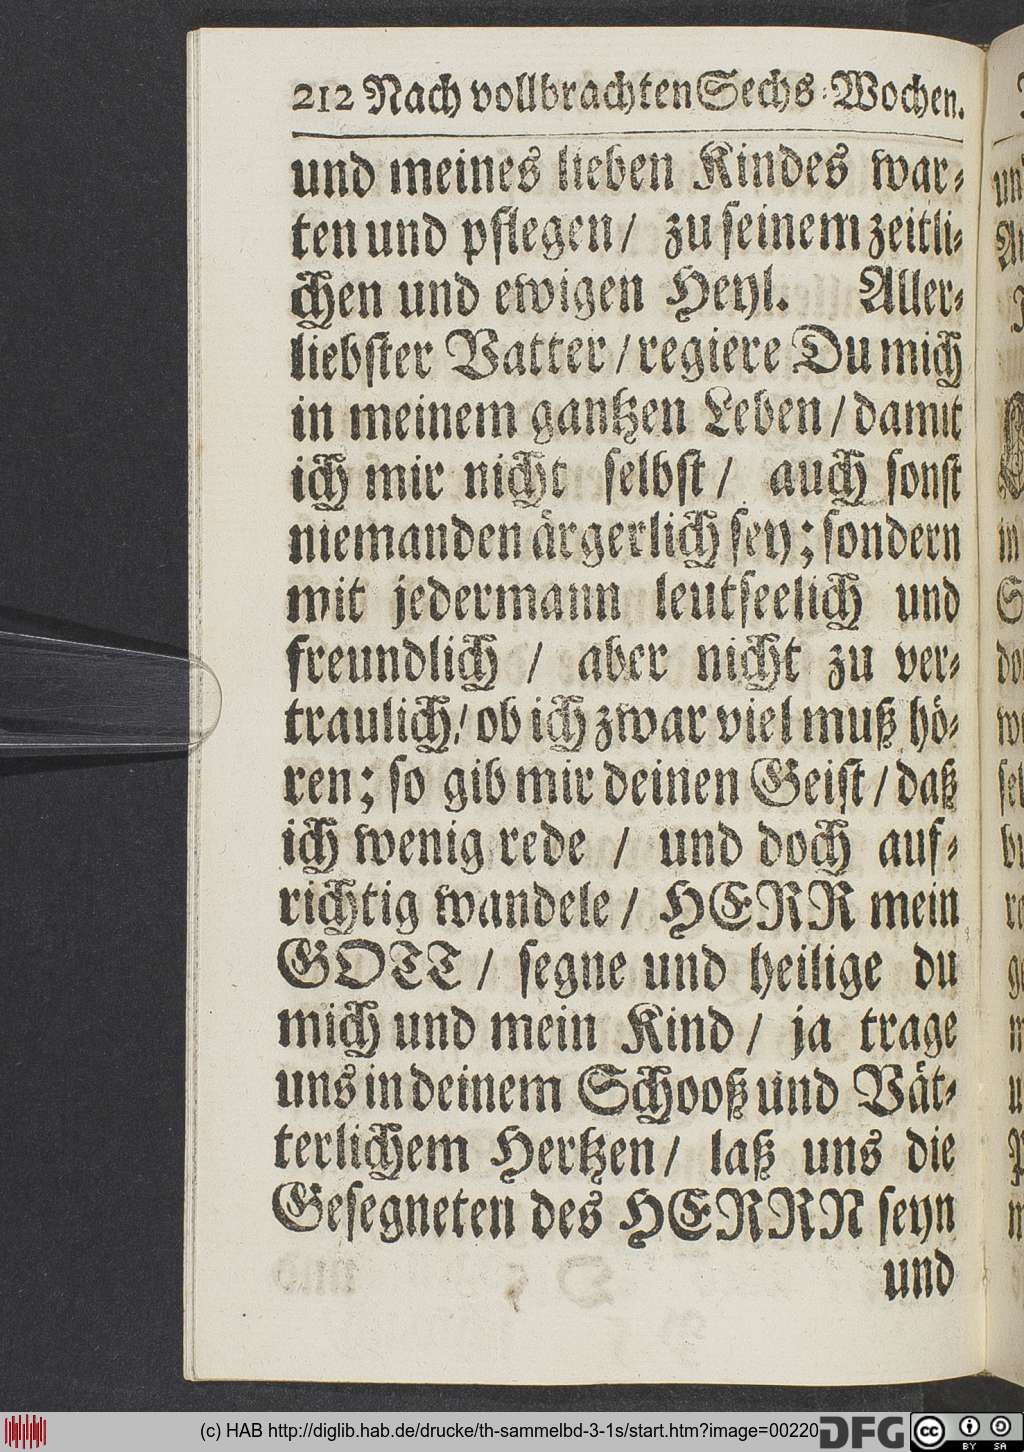 212 Nach vollbrachten Sechs-Wochen.
und meines lieben Kindes war-
ten und pflegen / zu seinem zeitli-
chen und ewigen Heyl. Aller-
liebster Vatter / regiere Du mich
in meinem gantzen Leben / damit
ich mir nicht selbst / auch sonst
niemanden ärgerlich sey; sondern
mit jedermann leutseelich und
freundlich / aber nicht zu ver-
traulich / ob ich zwar viel muß hö-
ren; so gib mir deinen Geist / daß
ich wenig rede / und doch auf-
richtig wandele / HERR mein
GOTT / segne und heilige du
mich und mein Kind / ja trage
uns in deinem Schooß und Vät-
terlichem Hertzen / laß uns die
Gesegneten des HERRN seyn
und
(c) HAB http://diglib.hab.de/drucke/th-sammelbd-3-1s/start.htm?image=00220
DFG
cc
BY SA